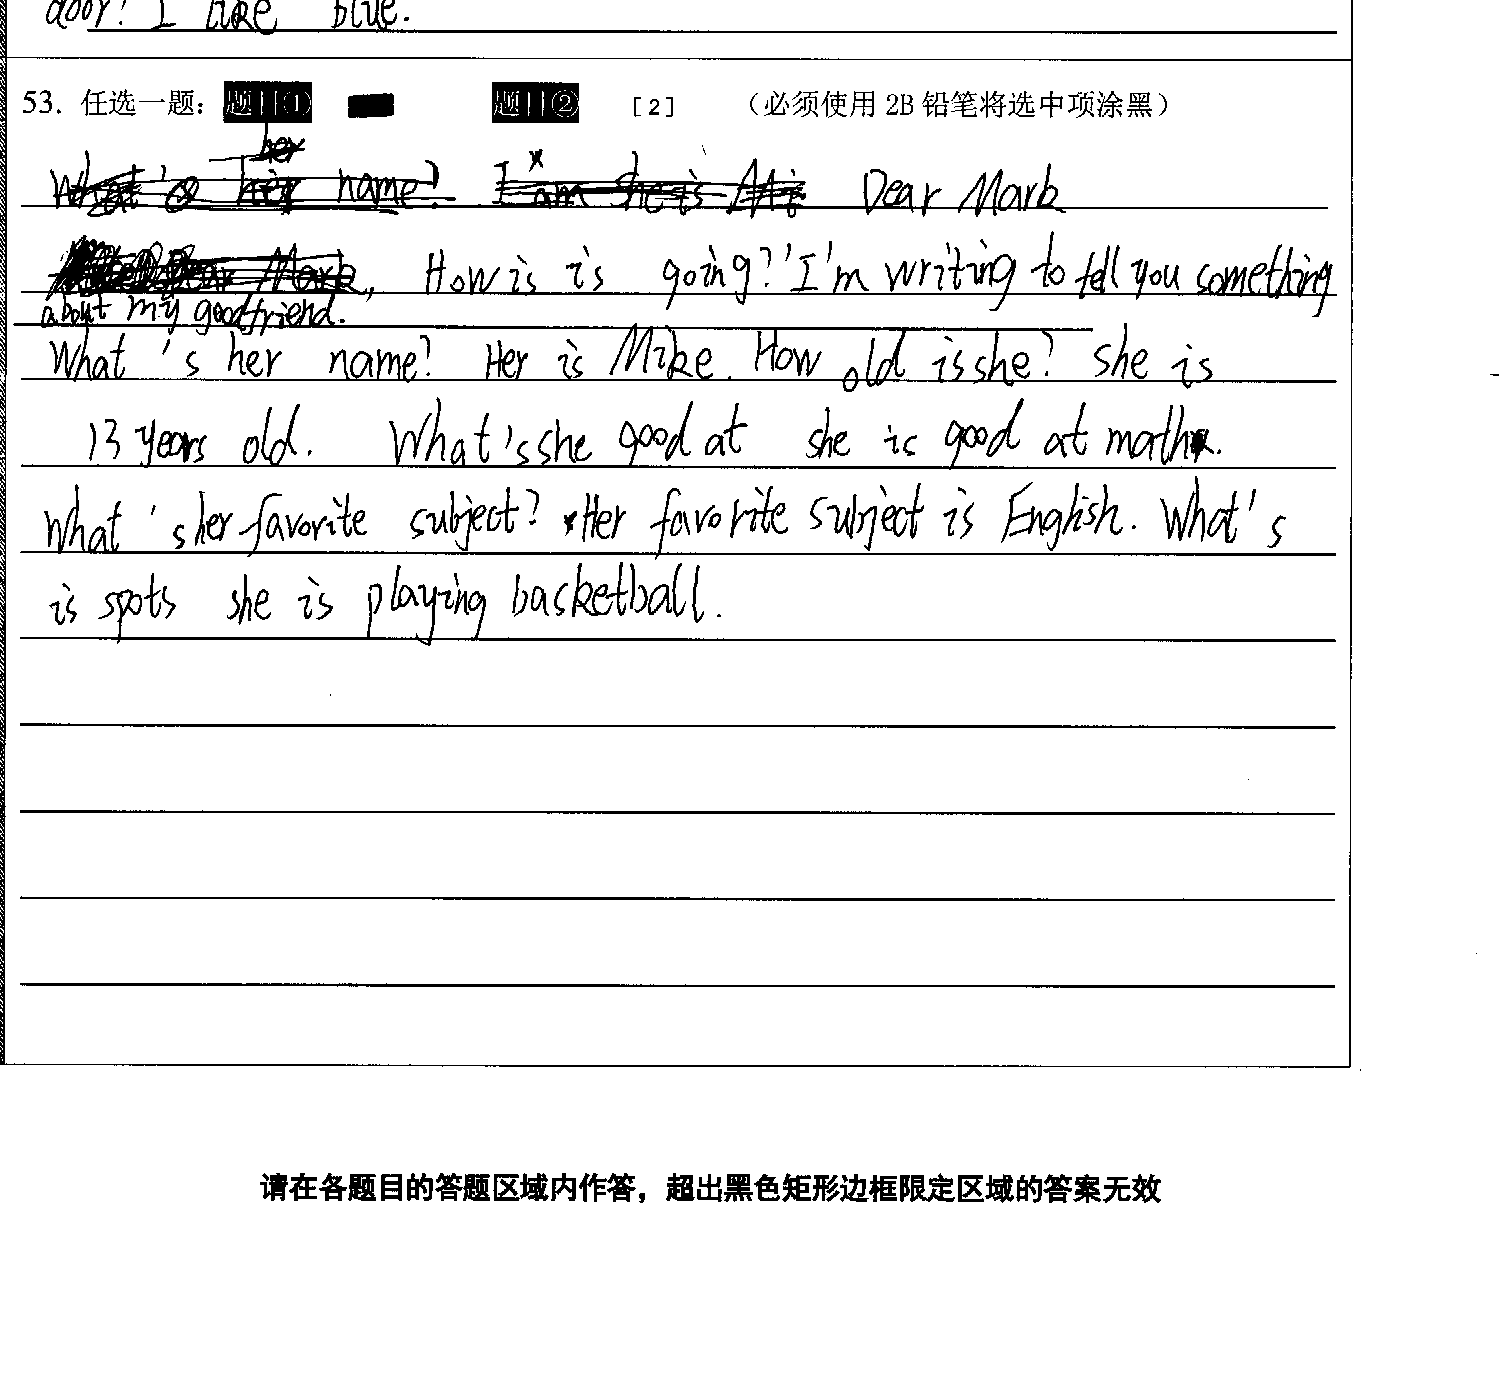 door? I like blue.
53. 任选一题： 题目① 题目② [2] （必须使用 2B 铅笔将选中项涂黑）
her
What's her name? I am she is Mi Dear Mark
Dear Mark, How is is going? I'm writing to tell you something
about my good friend.
What's her name? Her is Mike. How old is she? she is
13 years old. What's she good at she is good at math.
What's her favorite subject? Her favorite subject is English. What's
is spots she is playing basketball.
请在各题目的答题区域内作答，超出黑色矩形边框限定区域的答案无效